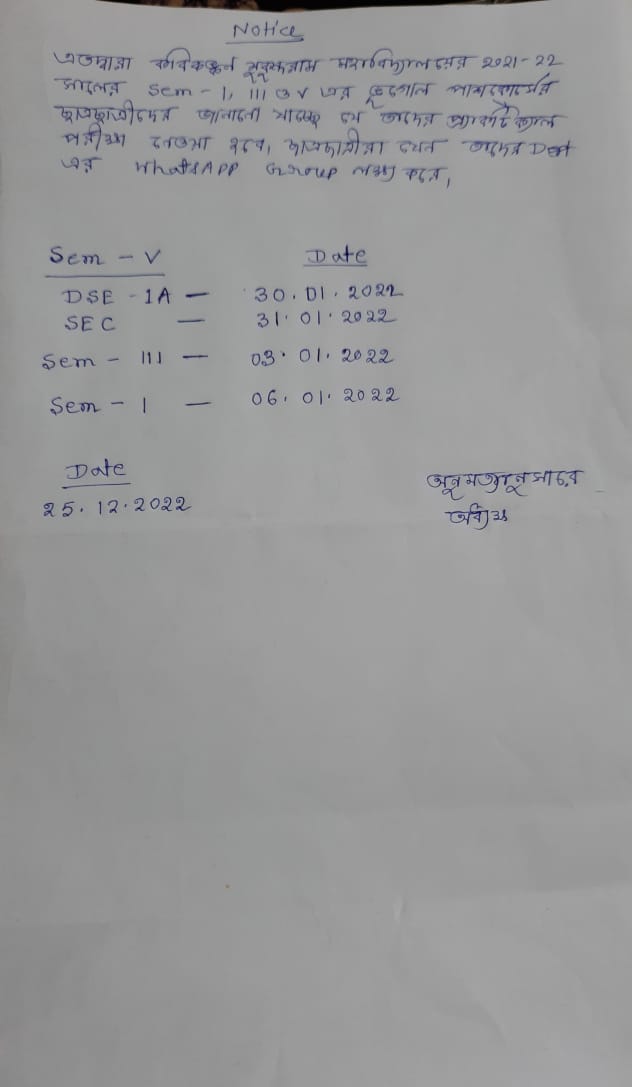 Notice
এতদ্বারা কবিকঙ্কন মুকুন্দরাম মহাবিদ্যালয়ের 2021-22
সালের Sem - I, III ও V এর ভূগোল পাসকোর্সের
ছাত্রছাত্রীদের জানানো যাচ্ছে যে তাদের প্র্যাকটিক্যাল
পরীক্ষা নেওয়া হবে, ছাত্রছাত্রীরা যেন তাদের Dept
এর WhatsAPP Group লক্ষ্য করে,
Sem - V Date
DSE - 1A — 30.01.2022
SEC — 31.01.2022
Sem - III — 03.01.2022
Sem - I — 06.01.2022
Date
25.12.2022
অনুমত্যানুসারে
অধ্যক্ষ